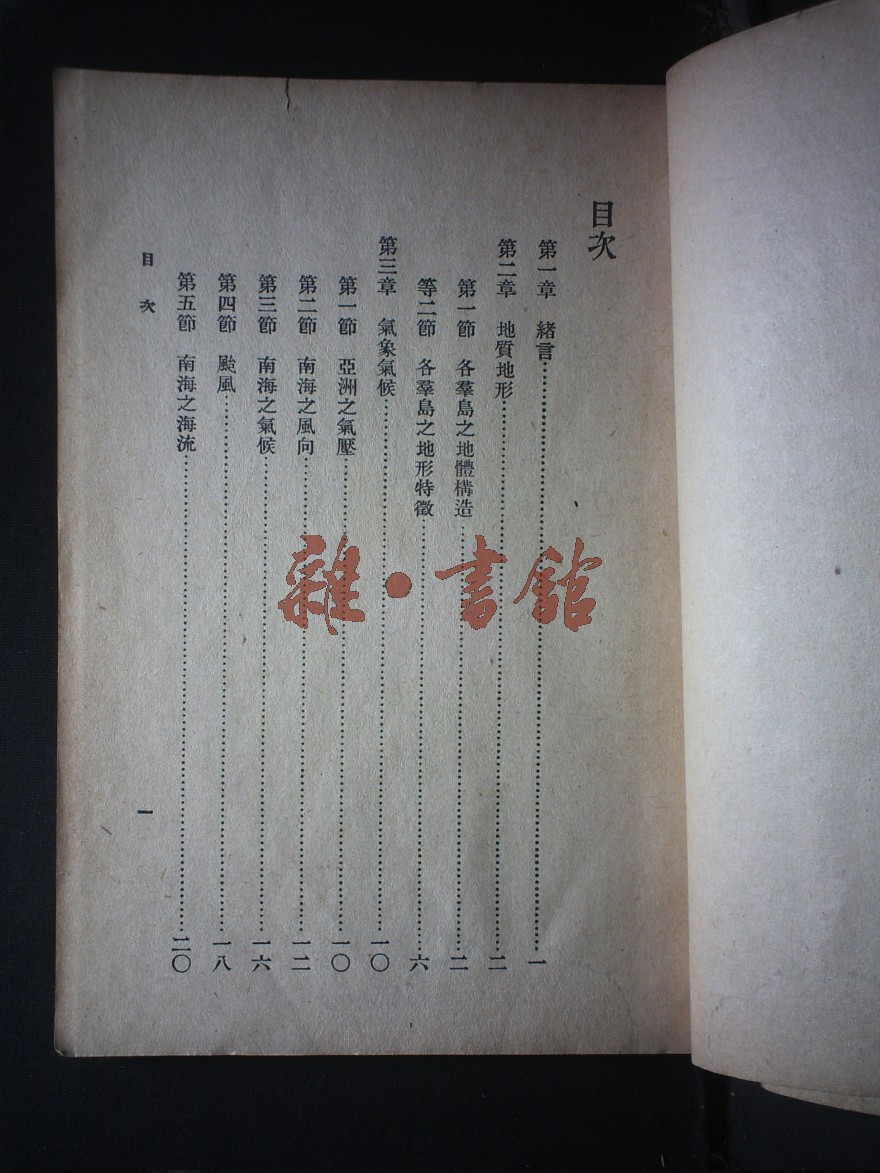 目次
第一章　緒言……一
第二章　地質地形……二
第一節　各羣島之地體構造……二
等二節　各羣島之地形特徵……六
第三章　氣象氣候……一〇
第一節　亞洲之氣壓……一〇
第二節　南海之風向……一二
第三節　南海之氣候……一六
第四節　颱風……一八
第五節　南海之海流……二〇
目次　一
雜·書館